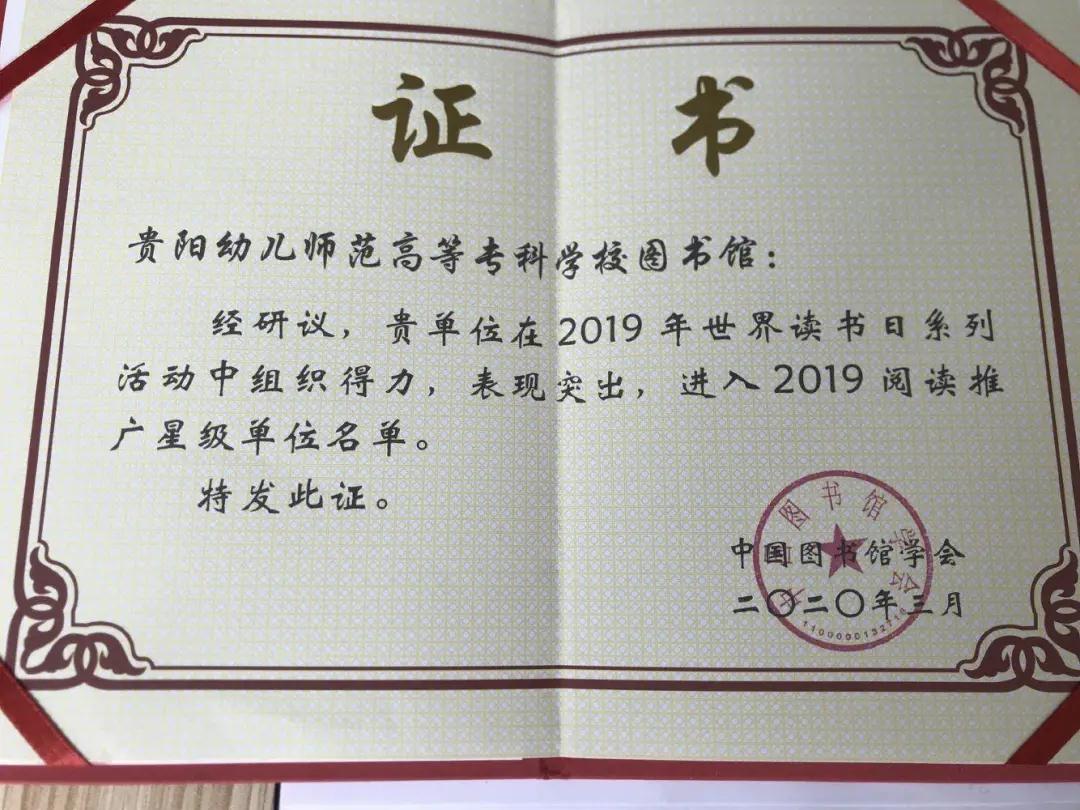 证 书
贵阳幼儿师范高等专科学校图书馆：
经研议，贵单位在2019年世界读书日系列
活动中组织得力，表现突出，进入2019阅读推
广星级单位名单。
特发此证。
中国图书馆学会
二〇二〇年三月
图书馆学会